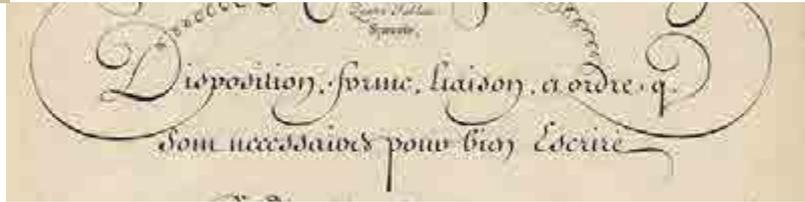 Disposition, forme, liaison, et ordre q.
sont necessaires pour bien Escrire